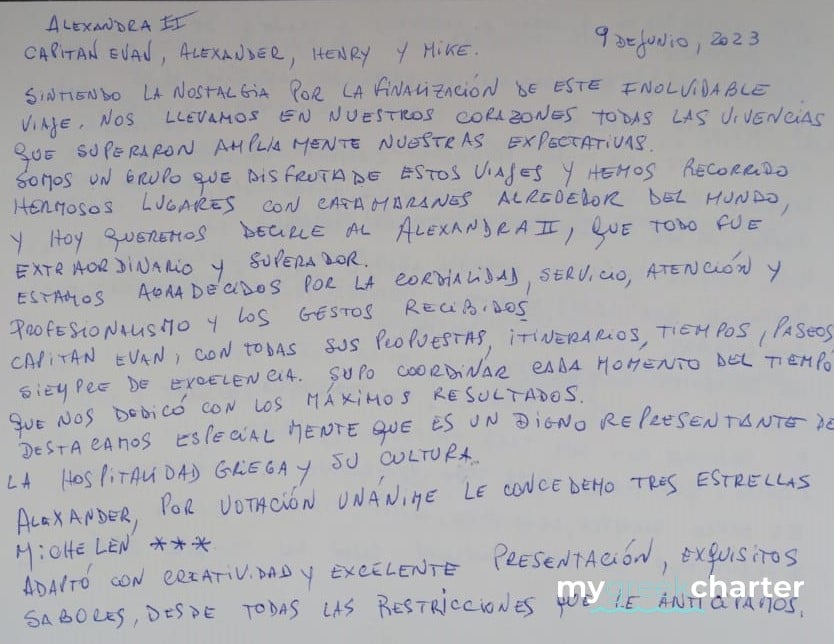 ALEXANDRA II
CAPITÁN EVAN, ALEXANDER, HENRY Y MIKE. 9 DE JUNIO, 2023
SINTIENDO LA NOSTALGIA POR LA FINALIZACIÓN DE ESTE INOLVIDABLE
VIAJE. NOS LLEVAMOS EN NUESTROS CORAZONES TODAS LAS VIVENCIAS
QUE SUPERARON AMPLIAMENTE NUESTRAS EXPECTATIVAS.
SOMOS UN GRUPO QUE DISFRUTA DE ESTOS VIAJES Y HEMOS RECORRIDO
HERMOSOS LUGARES CON CATAMARANES ALREDEDOR DEL MUNDO,
Y HOY QUEREMOS DECIRLE AL ALEXANDRA II, QUE TODO FUE
EXTRAORDINARIO Y SUPERADOR.
ESTAMOS AGRADECIDOS POR LA CORDIALIDAD, SERVICIO, ATENCIÓN Y
PROFESIONALISMO Y LOS GESTOS RECIBIDOS
CAPITAN EVAN, CON TODAS SUS PROPUESTAS, ITINERARIOS, TIEMPOS, PASEOS
SIEMPRE DE EXCELENCIA. SUPO COORDINAR CADA MOMENTO DEL TIEMPO
QUE NOS DEDICÓ CON LOS MÁXIMOS RESULTADOS.
DESTACAMOS ESPECIALMENTE QUE ES UN DIGNO REPRESENTANTE DE
LA HOSPITALIDAD GRIEGA Y SU CULTURA.
ALEXANDER, POR VOTACIÓN UNÁNIME LE CONCEDEMO TRES ESTRELLAS
MICHELEN ***
ADAPTÓ CON CREATIVIDAD Y EXCELENTE PRESENTACIÓN, EXQUISITOS
SABORES, DESDE TODAS LAS RESTRICCIONES QUE LE ANTICIPAMOS.
mygreekcharter